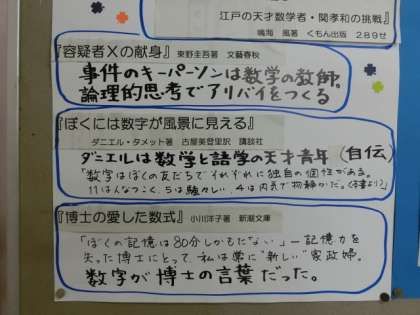 江戸の天才数学者・関孝和の挑戦』
鳴海 風著 くもん出版 289セ
『容疑者Xの献身』 東野圭吾著 文藝春秋
事件のキーパーソンは数学の教師。
論理的思考でアリバイをつくる
『ぼくには数字が風景に見える』
ダニエル・タメット著 古屋美登里訳 講談社
ダニエルは数学と語学の天才青年(自伝)
「数字はぼくの友だちでそれぞれに独自の個性がある。
11は人なつこく、5は騒々しい、4は内気で物静かだ。(本書より)」
『博士の愛した数式』 小川洋子著 新潮文庫
「ぼくの記憶は80分しかもたない」―記憶力を
失った博士にとって、私は常に“新しい”家政婦。
数字が博士の言葉だった。